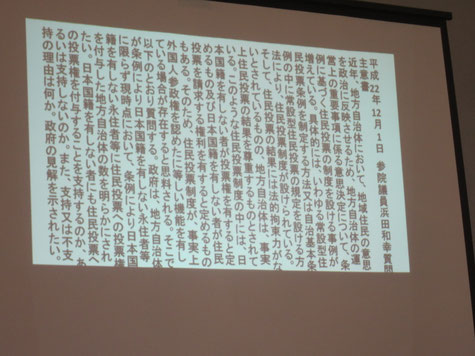 平成22年12月1日 参院議員浜田和幸質問
主意書
近年、地方自治体において、地域住民の意思
を政治に反映させるため、地方自治体の運
営上の重要事項に係る意思決定について、条
例に基づいて、住民投票制度を設ける事例が
増えている。具体的には、いわゆる常設型住
民投票条例を制定する方法や自治基本条
例の中に常設型住民投票の規定を設ける方
法により、住民投票制度が設けられている。
そして、住民投票の結果には法的拘束力がな
いとされているものの、地方自治体は、事実
上住民投票の結果を尊重するものとされて
いる。このような住民投票制度の中には、日
本国籍を有しない者が投票権を有すると定
めるもの及び日本国籍を有しない者が住民
投票を請求する権利を有すると定めるもの
もある。そのため、住民投票制度が、事実上
外国人参政権を認めたに等しい機能を有し
ている場合が存在すると思料される。そこで
以下のとおり質問する。政府は、地方自治体
が条例により日本国籍を有しない永住者等
に限らず現時点において、条例により日本国
籍を有しない永住者等に住民投票への投票権
を付与した地方自治体の数を明らかにされ
たい。日本国籍を有しない者にも住民投票へ
の投票権を付与することを支持するのか、あ
るいは支持しないのか。また、支持又は不支
持の理由は何か。政府の見解を示されたい。